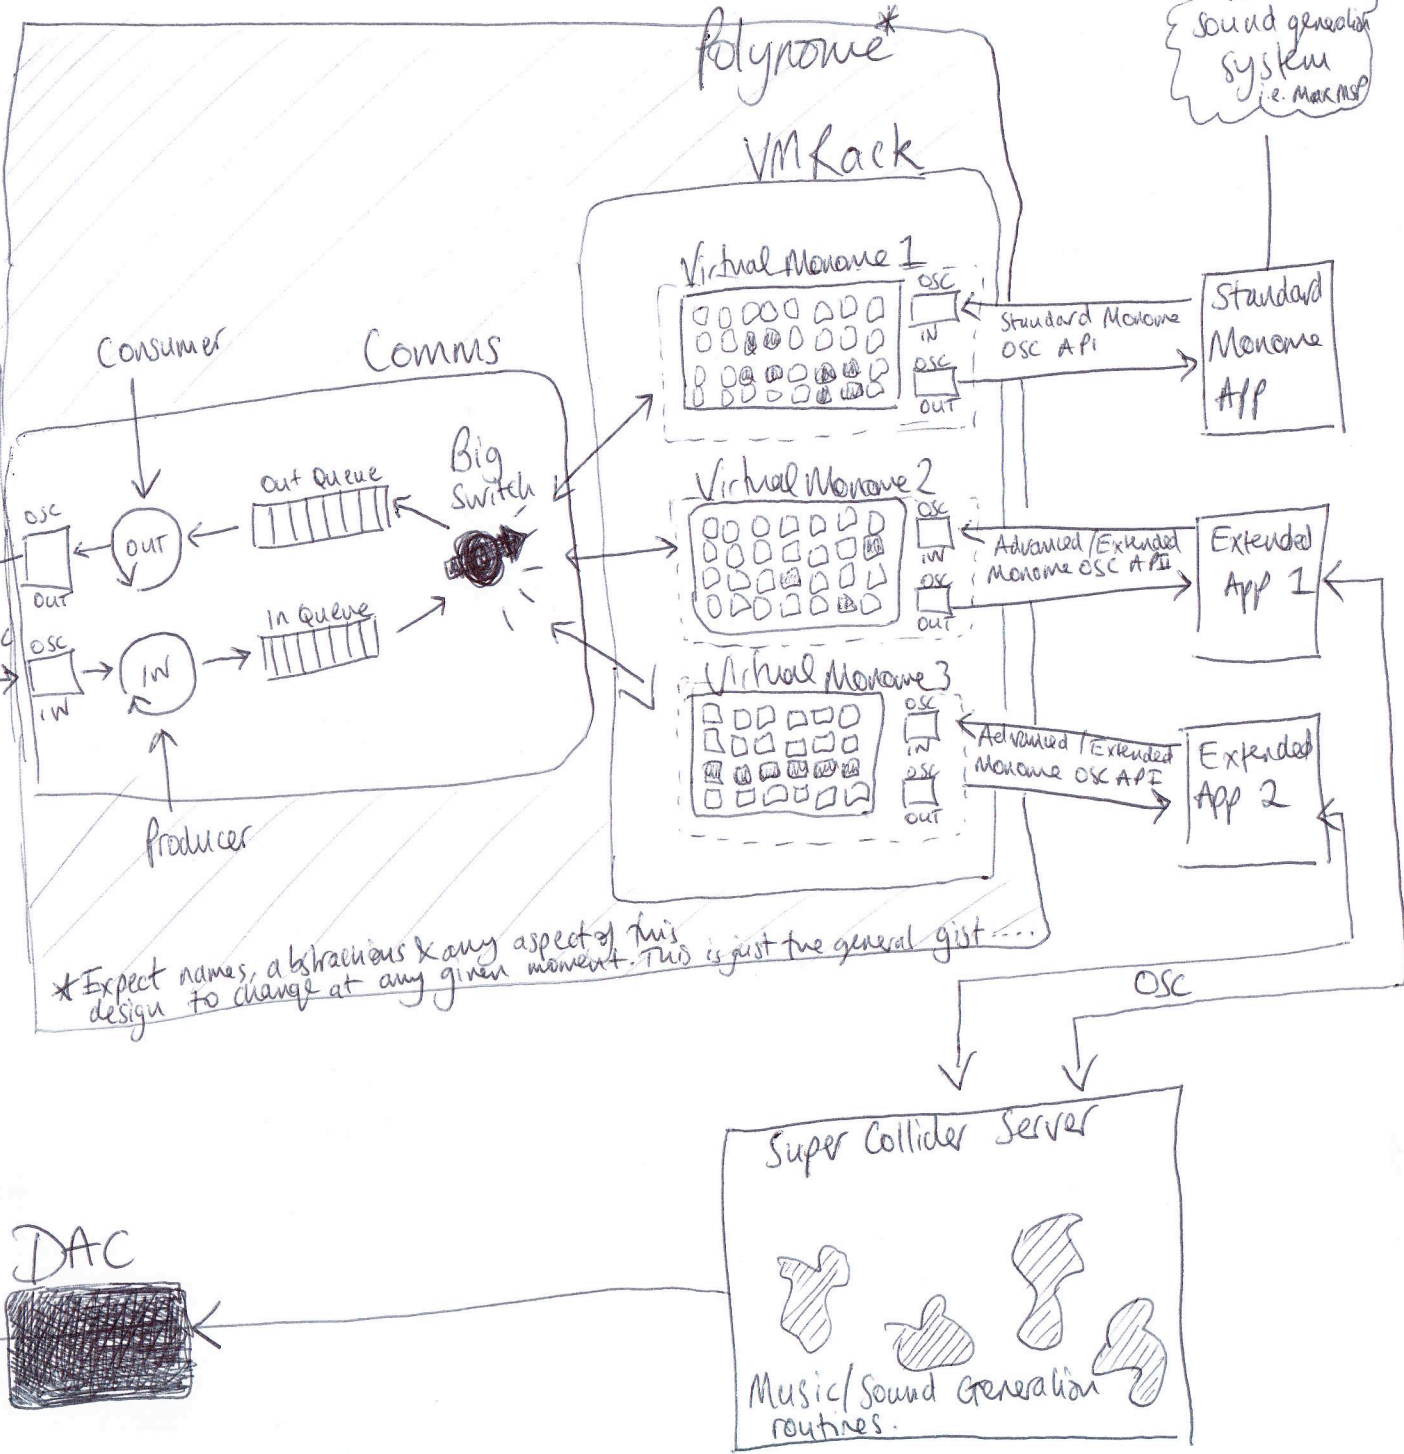 Polynome*
sound generation
system
i.e. Max MSP
VM Rack
Virtual Monome 1
OSC
IN
OSC
OUT
Standard Monome
OSC API
Standard
Monome
App
Consumer
Comms
Big
Switch
Out Queue
OSC
OUT
OUT
In Queue
OSC
IN
IN
Producer
Virtual Monome 2
OSC
IN
OSC
OUT
Advanced/Extended
Monome OSC API
Extended
App 1
Virtual Monome 3
OSC
IN
OSC
OUT
Advanced/Extended
Monome OSC API
Extended
App 2
*Expect names, abstractions & any aspect of this
design to change at any given moment. This is just the general gist.....
OSC
Super Collider Server
Music/Sound Generation
routines.
DAC